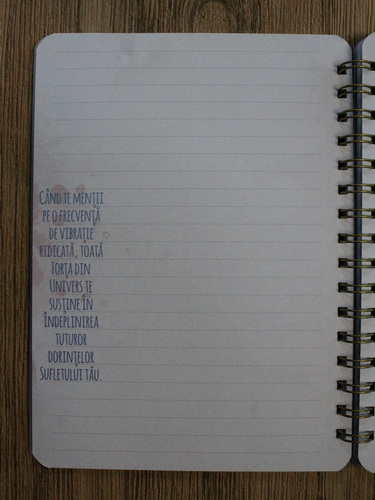 Când te menții
pe o frecvență
de vibrație
ridicată, toată
Forța din
Univers te
susține în
îndeplinirea
tuturor
dorințelor
Sufletului tău.